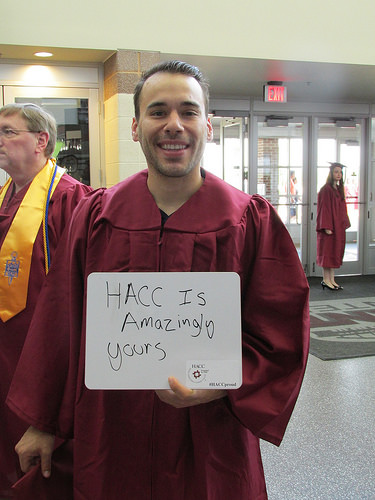 EXIT
HACC Is
Amazingly
yours
HACC
#HACCproud